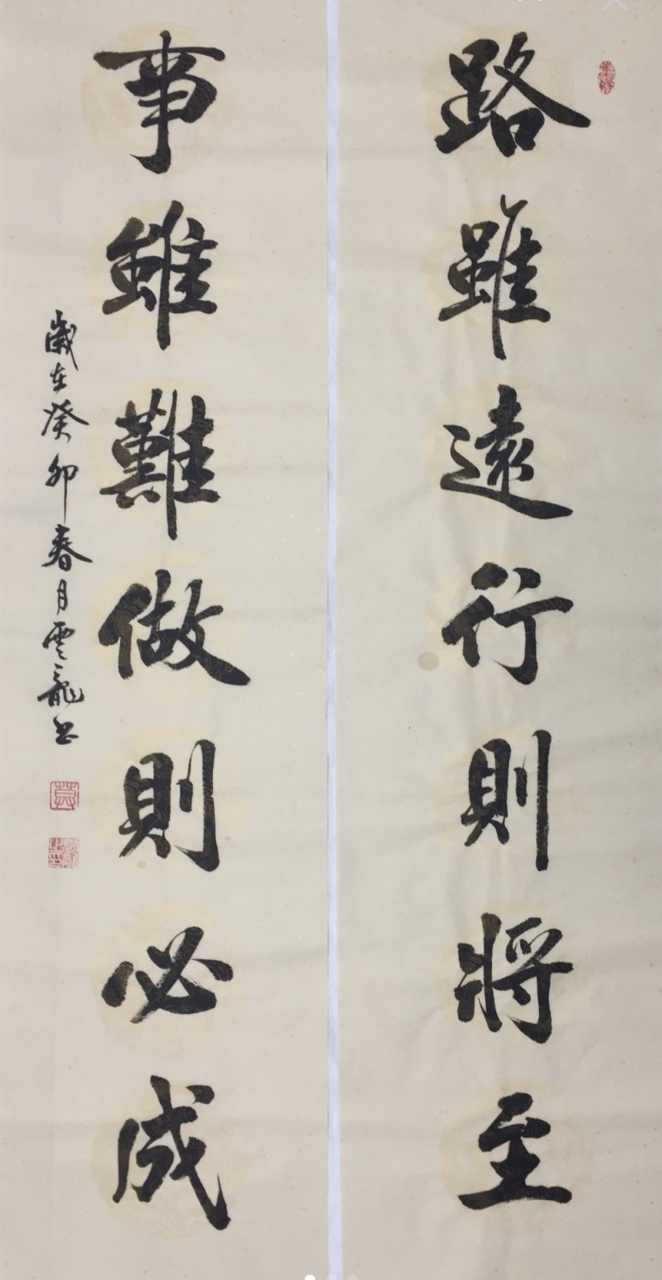 路雖遠行則將至
事雖難做則必成
歲在癸卯春月雲龍書